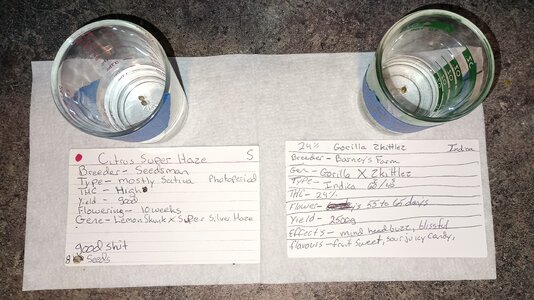 Citrus Super Haze S
Breeder - Seedsman
Type - mostly Sativa Photoperiod
THC - High
Yield - good
Flowering - 10 weeks
Gene - Lemon Skunk x Super Silver Haze
good shit
8 Seeds
24% Gorilla Zkittlez Indica
Breeder - Barney's Farm
Gen - Gorilla X Zkittlez
Type - Indica 60/40
THC - 24%
Flower - 55 to 65 days
Yield - 2500g
Effects - mind headbuzz, blissful
flavours - fruit sweet, sour juicy candy,